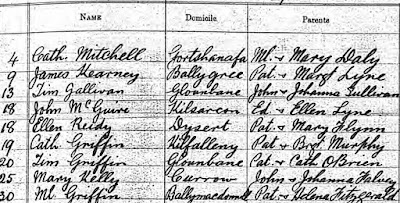 NAME Domicile Parents
4 Cath. Mitchell Gortshanafa Ml. & Mary Daly
9 James Kearney Ballygree Pat. & Margt Lyne
13 Tim Gallivan Glounbane John & Johanna Sullivan
18 John McGuire Kilsarcon Ed. & Ellen Lyne
18 Ellen Reidy Dysert Pat. & Mary Flynn
19 Cath Griffin Kilfalleny Pat & Brgt. Murphy
20 Tim Griffin Glounbane Pat. & Cath O'Brien
25 Mary Kelly Currow John & Johanna Halvey
30 Ml. Griffin Ballymacdonnell Pat. & Helena Fitzgerald